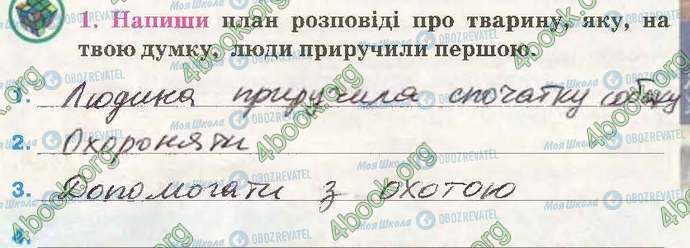 1. Напиши план розповіді про тварину, яку, на
твою думку, люди приручили першою.
1. Людина приручила спочатку собаку
2. Охороняти
3. Допомогати з охотою
4.